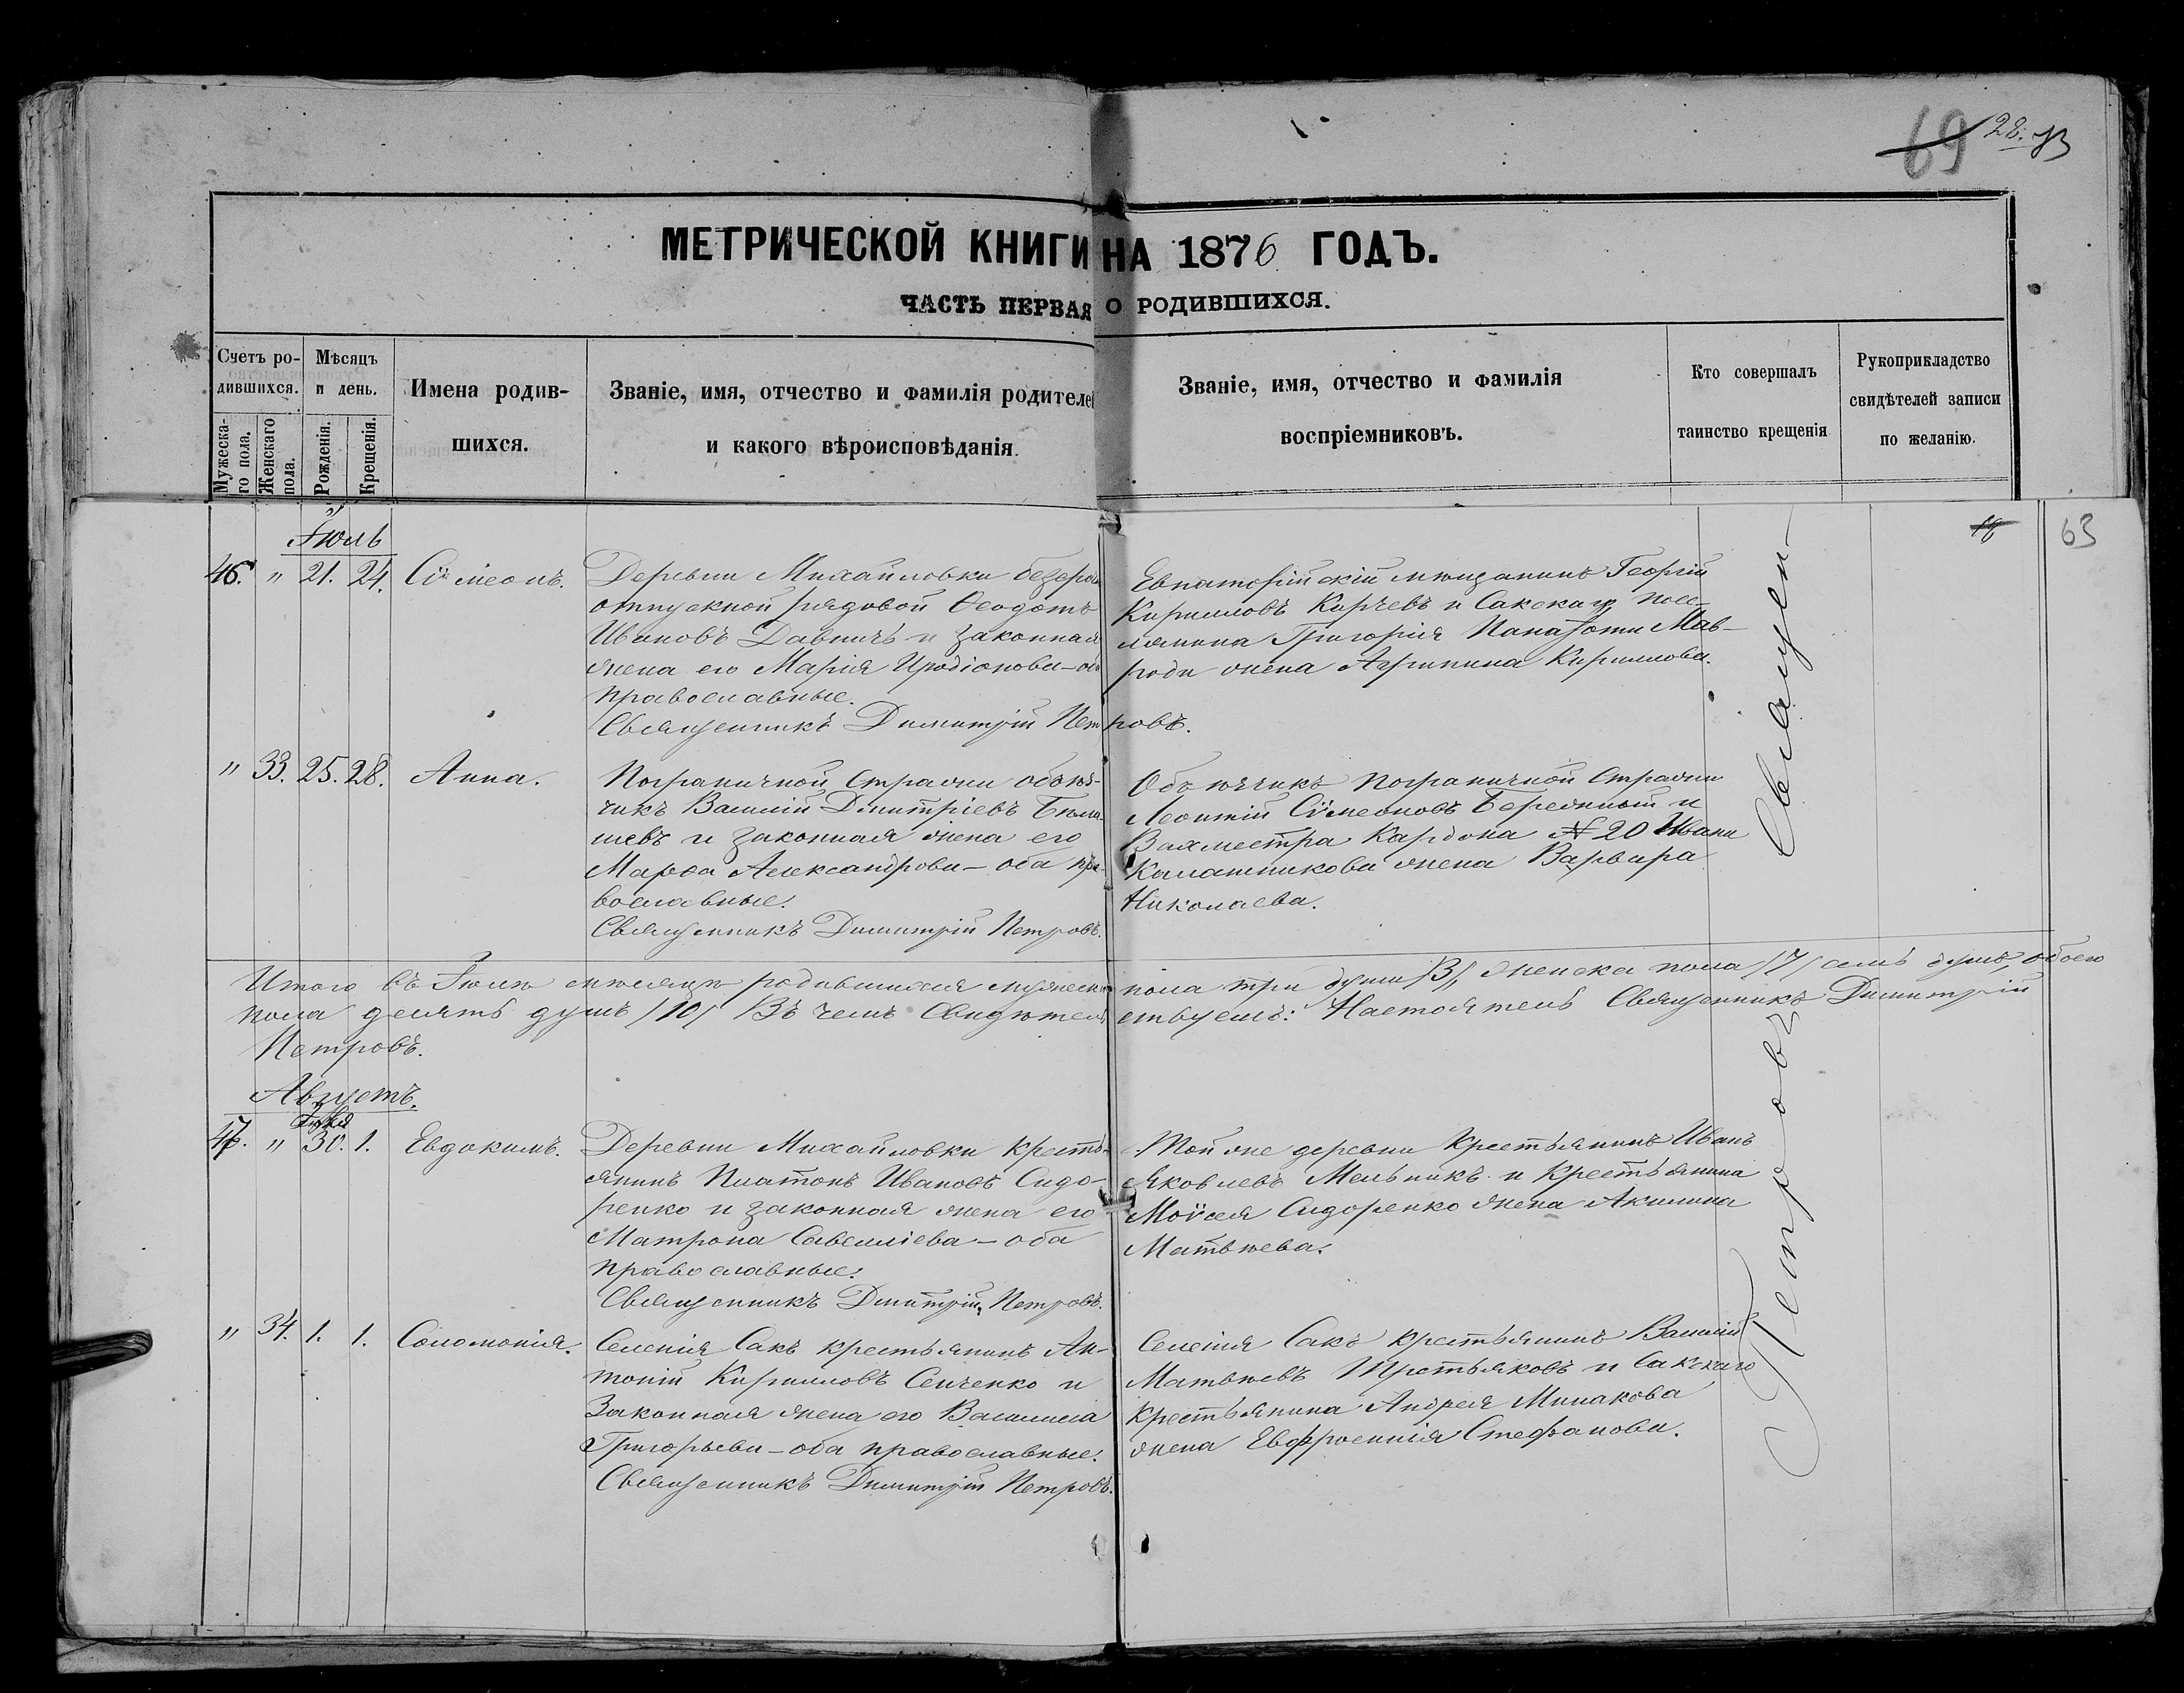 69 28.
МЕТРИЧЕСКОЙ КНИГИ НА 1876 ГОДЪ.
ЧАСТЬ ПЕРВАЯ О РОДИВШИХСЯ.
Счетъ родившихся.
Мужескаго пола.
Женскаго пола.
Мѣсяцъ и день.
Рожденія.
Крещенія.
Имена родившихся.
Званіе, имя, отчество и фамилія родителей
и какого вѣроисповѣданія.
Званіе, имя, отчество и фамилія
воспріемниковъ.
Кто совершалъ
таинство крещенія
Рукоприкладство
свидѣтелей записи
по желанію.
63
Іюль
46. " 21. 24. Сѵмеонъ.
Деревни Михайловки
отпускной рядовой Ѳеодотъ
Ивановъ и законная
жена его Марія Иродіонова – оба
православные.
Священникъ Димитрій Петровъ.
Евпаторійскій мѣщанинъ Георгій
Кирилловъ Кирчевъ и Сакскаго посе-
лянина Григорія Панаіоти Мав-
роди жена Агрипина Кириллова.
" 33. 25. 28. Анна.
Пограничной Стражи объѣз-
чикъ Василій Дмитріевъ
и законная жена его
Марѳа Александрова – оба пра-
вославные.
Священникъ Димитрій Петровъ.
Объѣзчикъ Пограничной Стражи
Леонтій Сѵмеоновъ Бережный и
Вахмистра Кардона № 20 Ивана
Калашникова жена Варвара
Николаева.
Итого въ Іюлѣ мѣсяцѣ родившихся мужеска пола три души /3/, женска пола /7/ семь душъ, обоего
пола десять душъ /10/ Въ чемъ свидѣтельствуемъ: Настоятель Священникъ Димитрій
Петровъ.
Августъ.
47. " 30. 1. Евдокимъ.
Деревни Михайловки кресть-
янинъ Платонъ Ивановъ Сидо-
ренко и законная жена его
Матрона Савелліева – оба
православные.
Священникъ Дмитрій Петровъ.
Той же деревни Крестьянинъ Иванъ
Яковлевъ Мельникъ и Крестьянина
Моѵсея Сидоренко жена Акилина
Матвѣева.
" 34. 1. 1. Соломонія.
Селенія Сакъ крестьянинъ Ан-
тоній Кирилловъ Сенченко и
Законная жена его Василиса
Григорьева – оба православные.
Священникъ Димитрій Петровъ.
Селенія Сакъ крестьянинъ Василій
Матвѣевъ Третьяковъ и Сакскаго
крестьянина Андрея Минакова
жена Евфросинія Стефанова.
Священ-
Петровъ